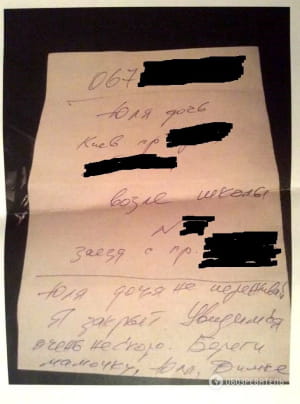 067
Юля дочь
Киев пр
возле школы
N
заезд с пр.
Юля доця не переживай
Я закрыт Увидимся
очень нескоро. Береги
мамочку, Юля, Димке
ОБОЗРЕВАТЕЛЬ